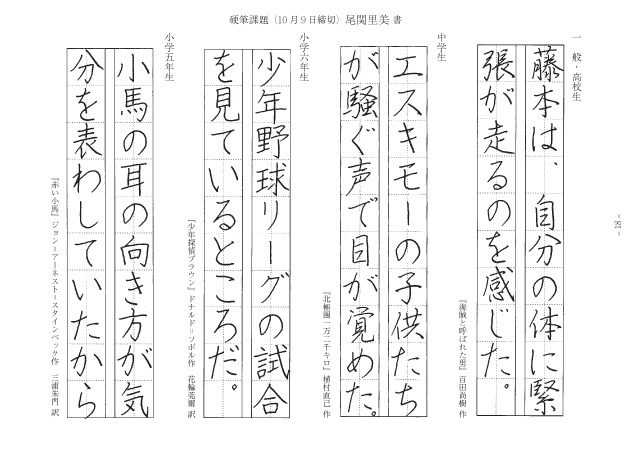 硬筆課題（10月9日締切）尾関里美 書
一般・高校生
藤本は、自分の体に緊
張が走るのを感じた。
『海賊と呼ばれた男』百田尚樹 作
中学生
エスキモーの子供たち
が騒ぐ声で目が覚めた。
『北極圏一万二千キロ』植村直己 作
小学六年生
少年野球リーグの試合
を見ているところだ。
『少年探偵ブラウン』ドナルド＝ソボル作 花輪莞爾 訳
小学五年生
小馬の耳の向き方が気
分を表わしていたから
『赤い小馬』ジョン＝アーネスト＝スタインベック作 三浦朱門 訳
- 18 -